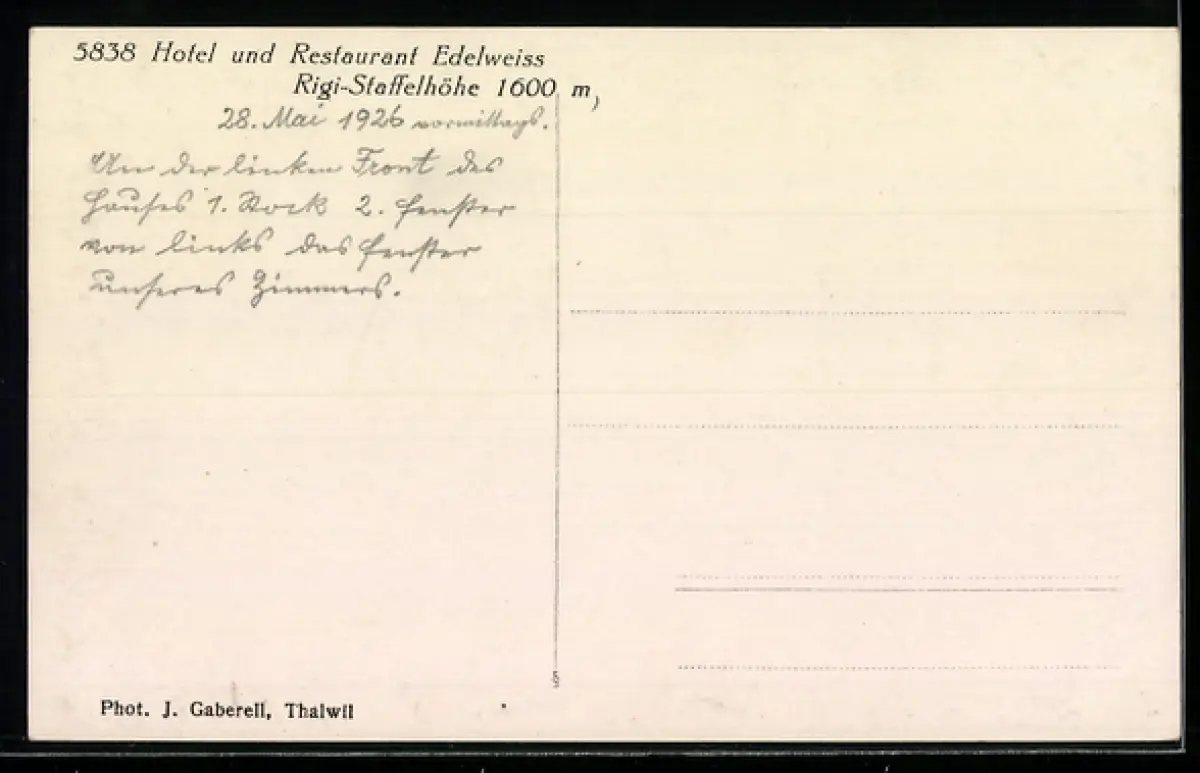 5838 Hotel und Restaurant Edelweiss
Rigi-Staffelhöhe 1600 m,
28. Mai 1926 vormittags.
An der linken Front des
Hauses 1. Stock 2. Fenster
von links das Fenster
unseres Zimmers.
§
Phot. J. Gaberell, Thalwil